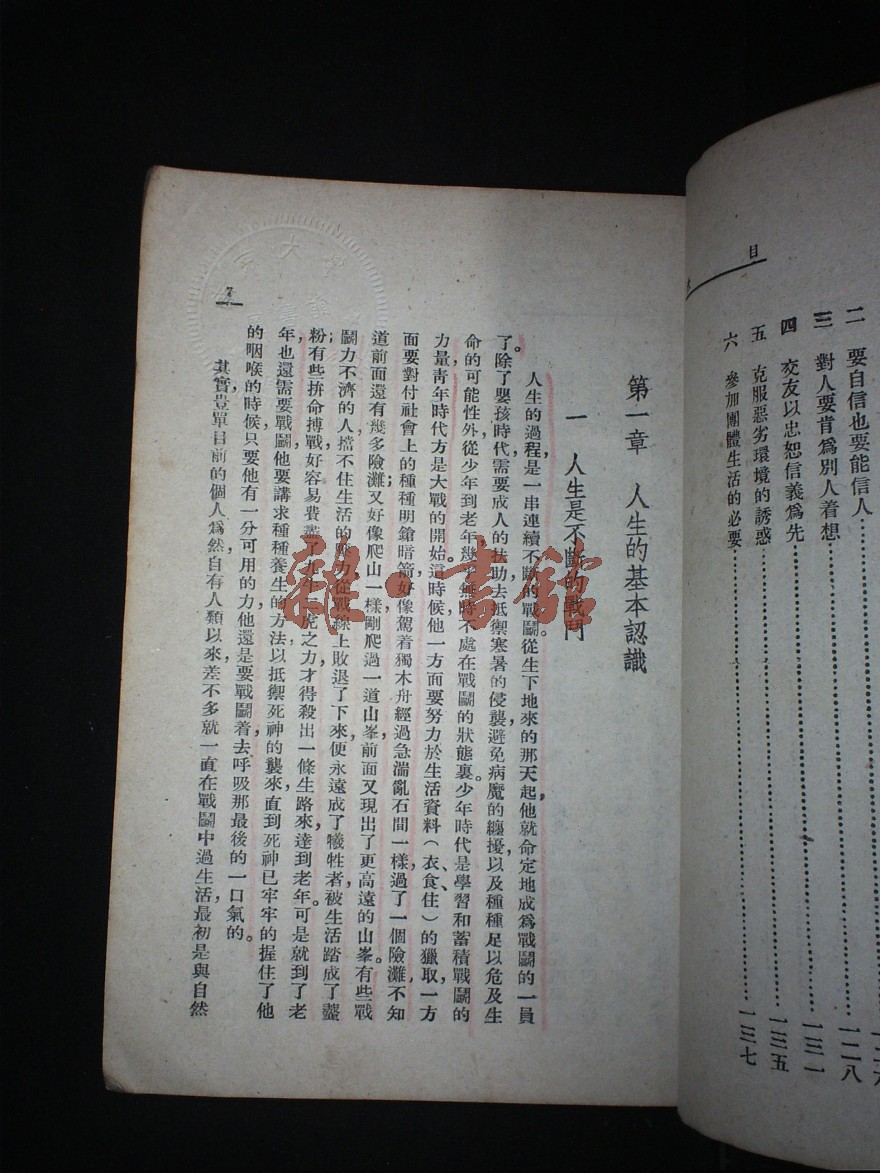 目
二　要自信也要能信人………………一二八
三　對人要肯爲別人着想………………一三一
四　交友以忠恕信義爲先………………一三五
五　克服惡劣環境的誘惑………………
六　參加團體生活的必要………………一三七
第一章　人生的基本認識
一　人生是不斷的戰鬥
人生的過程，是一串連續不斷的戰鬭。從生下地來的那天起，他就命定地成爲戰鬭的一員
了。除了嬰孩時代需要成人的扶助，去抵禦寒暑的侵襲，避免病魔的纏擾，以及種種足以危及生
命的可能性外，從少年到老年，幾乎無時不處在戰鬭的狀態裏。少年時代是學習和蓄積戰鬭的
力量，靑年時代方是大戰的開始。這時候，他一方面要努力於生活資料（衣、食、住）的獵取，一方
面要對付社會上的種種明鎗暗箭，好像駕着獨木舟經過急湍亂石間一樣，過了一個險灘，不知
道前面還有幾多險灘；又好像爬山一樣，剛爬過一道山峯，前面又現出了更高遠的山峯。有些戰
鬭力不濟的人，擋不住生活的壓力，從戰線上敗退了下來，便永遠成了犧牲者，被生活踏成了虀
粉；有些拚命搏戰，好容易費盡了九牛二虎之力，才得殺出一條生路來，達到老年。可是就到了老
年，也還需要戰鬭，他要講求種種養生的方法，以抵禦死神的襲來，直到死神已牢牢的握住了他
的咽喉的時候，只要他有一分可用的力，他還是要戰鬭着去呼吸那最後的一口氣的。
其實，豈單目前的個人爲然，自有人類以來，差不多就一直在戰鬭中過生活，最初是與自然
7
雜·書館